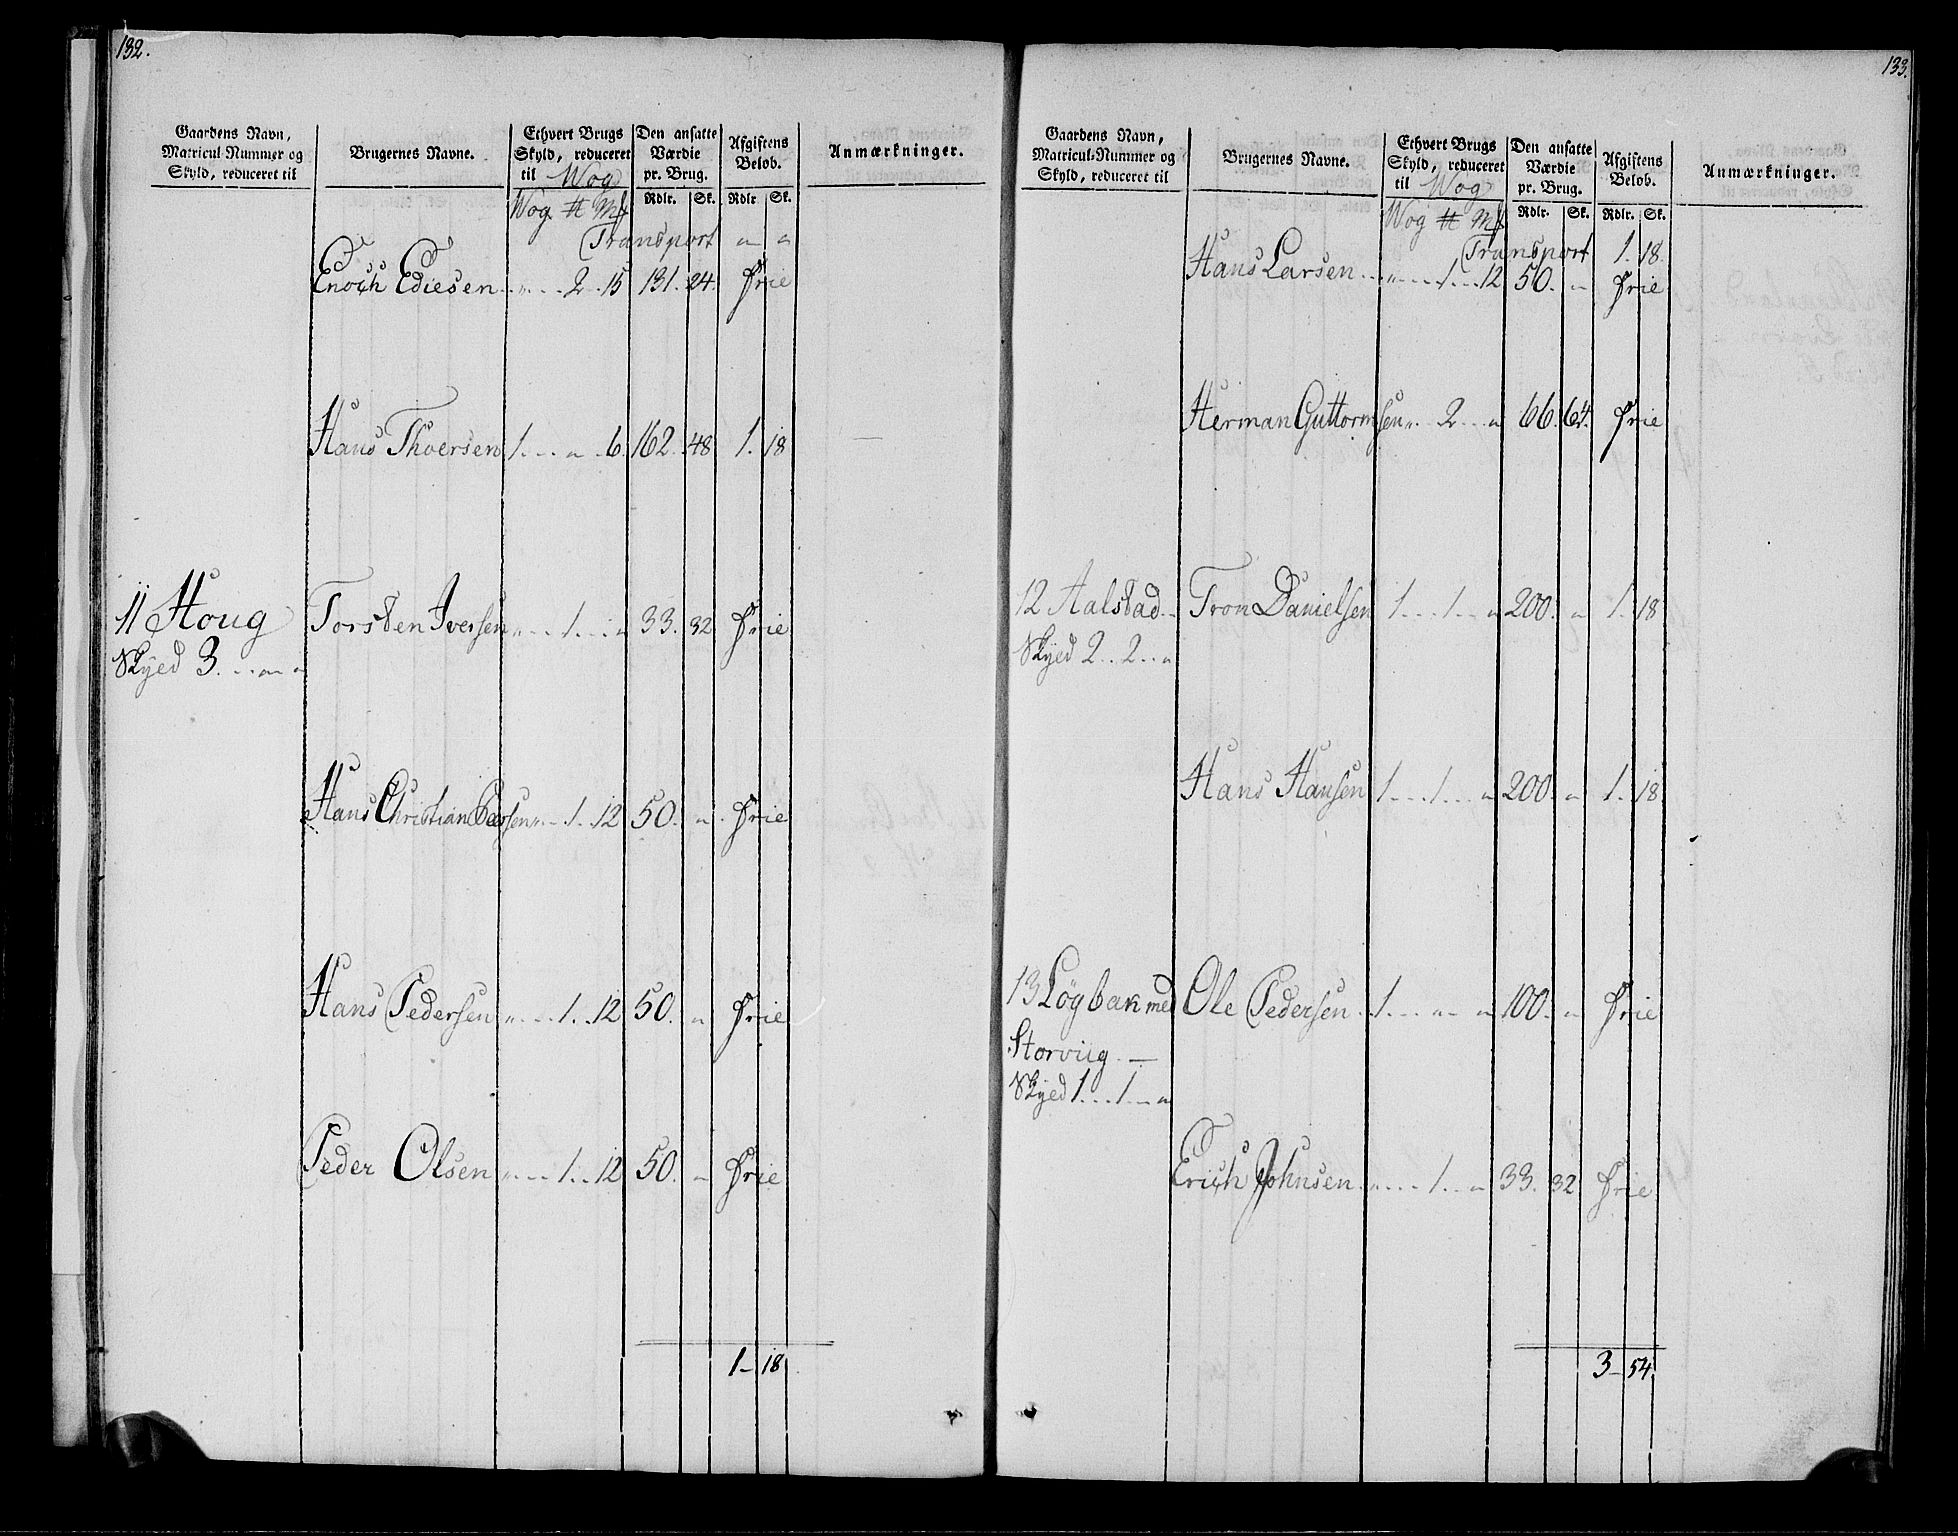 132.
Gaardens Navn, Matricul-Nummer og Skyld, reduceret til
Brugernes Navne.
Ethvert Brugs Skyld, reduceret til Wog
Den ansatte Værdie pr. Brug.
Afgiftens Belob.
Anmærkninger.
Wog ℔ Mk Rdlr. Sk. Rdlr. Sk.
Transport " "
Enoch Ediesen " 2 15 131. 24. Frie
Hans Thoersen 1 " 6 162. 48 1. 18
11 Houg Torsten Iversen " 1 " 33. 32 Frie
Skyed 3. " "
Hans Christian Peersen " 1 12 50. " Frie
Hans Pedersen " 1 12 50. " Frie
Peder Olsen " 1 12 50. " Frie
1 - 18
133.
Gaardens Navn, Matricul-Nummer og Skyld, reduceret til
Brugernes Navne.
Ethvert Brugs Skyld, reduceret til Wog
Den ansatte Værdie pr. Brug.
Afgiftens Belob.
Anmærkninger.
Wog ℔ Mk Rdlr. Sk. Rdlr. Sk.
Transport 1. 18.
Hans Larsen " 1 12 50. " Frie
Herman Guttormsen " 2 " 66. 64. Frie
12 Aalstad Tron Danielsen 1 1 " 200. " 1. 18
Skyed 2 2 "
Hans Hansen 1 1 " 200. " 1. 18
13 Løgbak med Ole Pedersen 1 " " 100. " Frie
Storviig
Skyed 1 1 "
Erich Johnsen " 1 " 33. 32 Frie
3 - 54.